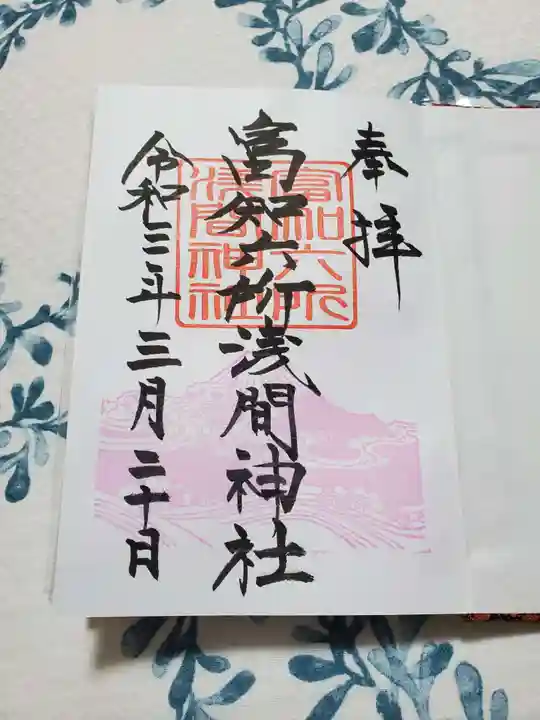 奉拝
富知六所浅間神社
令和三年三月二十日
富知六所
浅間神社